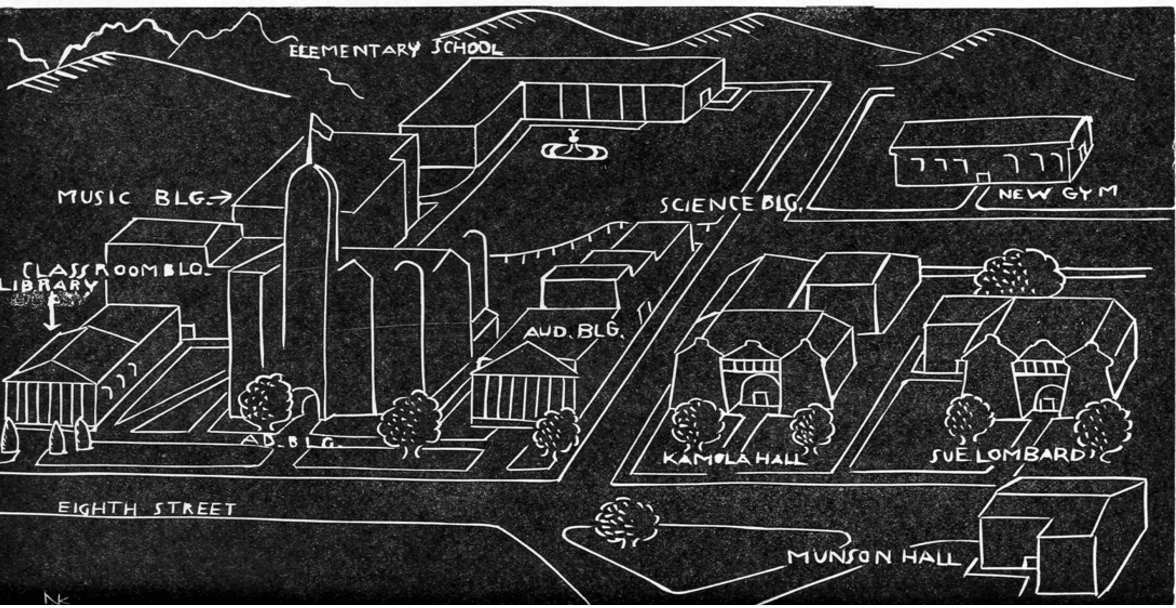 ELEMENTARY SCHOOL
MUSIC BLG.→
SCIENCE BLG.
NEW GYM
CLASSROOM BLG.
LIBRARY
AUD. BLG.
AD. BLG.
KAMOLA HALL
SUE LOMBARD
EIGHTH STREET
MUNSON HALL
NK